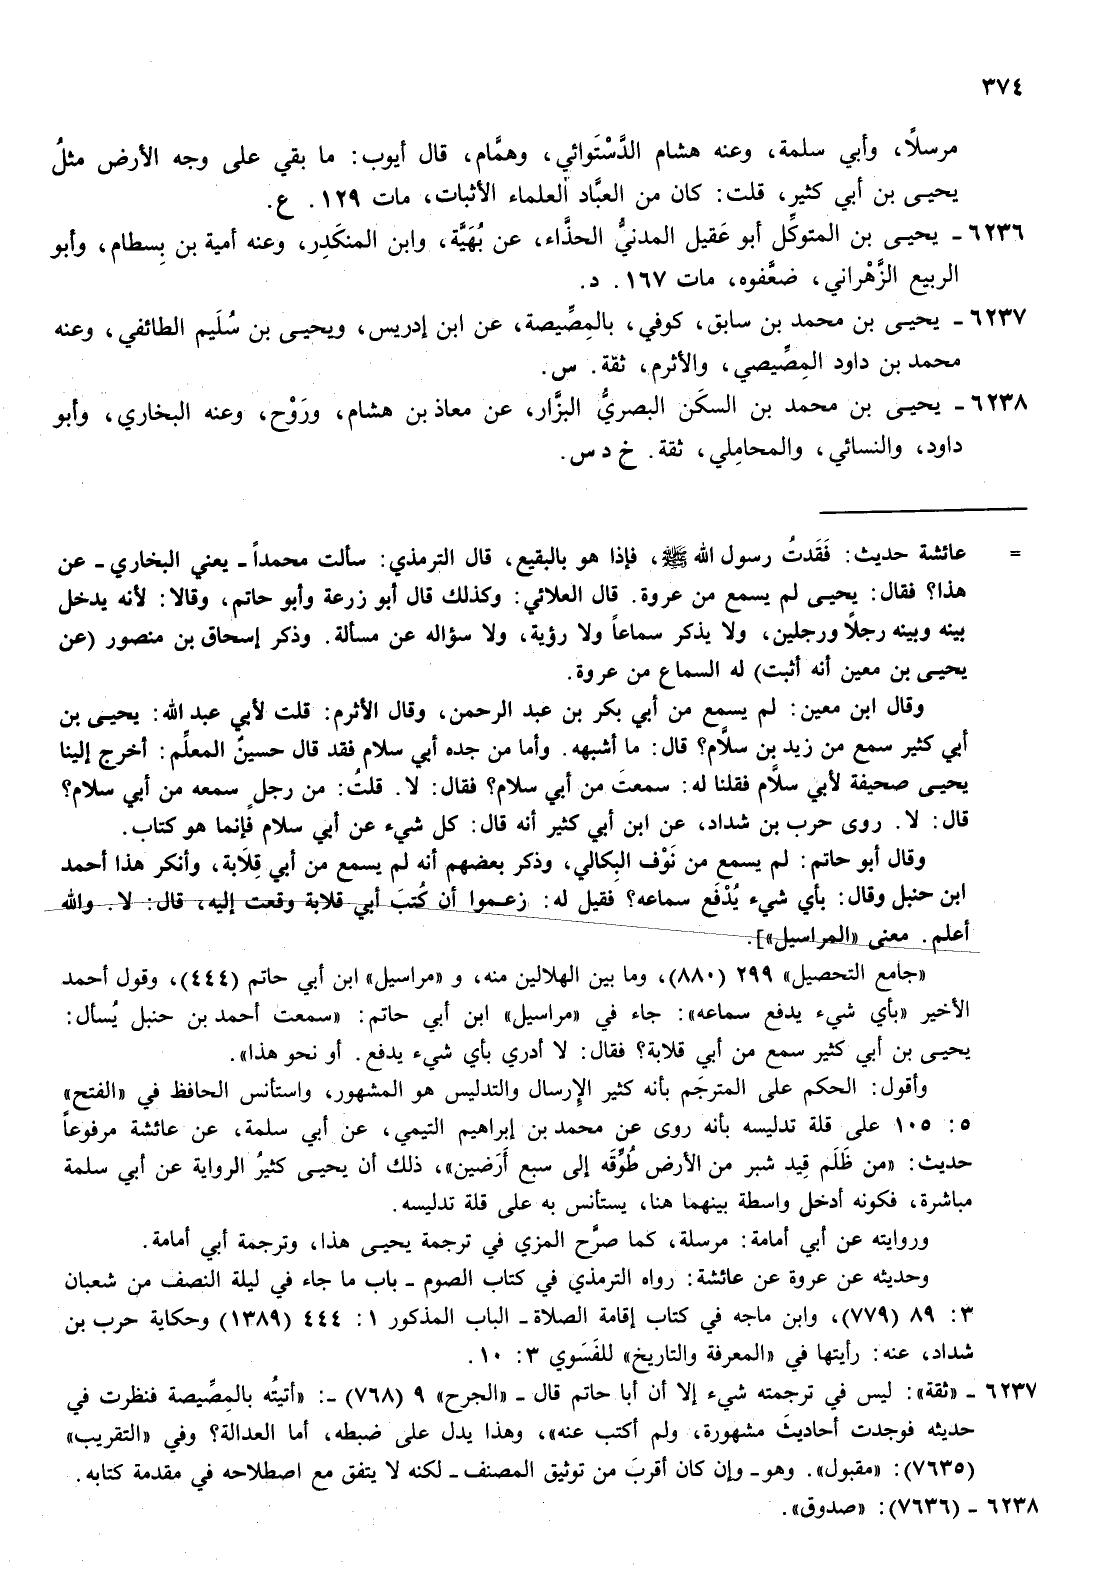 ٣٧٤
مرسلًا، وأبي سلمة، وعنه هشام الدَّسْتَوائي، وهمَّام، قال أيوب: ما بقي على وجه الأرض مثلُ
يحيى بن أبي كثير، قلت: كان من العبَّاد العلماء الأثبات، مات ١٢٩. ع.
٦٢٣٦ ـ يحيى بن المتوكِّل أبو عَقيل المدنيُّ الحذَّاء، عن بُهَيَّة، وابن المنكَدِر، وعنه أمية بن بِسطام، وأبو
الربيع الزَّهْراني، ضعَّفوه، مات ١٦٧. د.
٦٢٣٧ ـ يحيى بن محمد بن سابق، كوفي، بالمِصِّيصة، عن ابن إدريس، ويحيى بن سُلَيم الطائفي، وعنه
محمد بن داود المِصِّيصي، والأثرم، ثقة. س.
٦٢٣٨ ـ يحيى بن محمد بن السكَن البصريُّ البزَّار، عن معاذ بن هشام، ورَوْح، وعنه البخاري، وأبو
داود، والنسائي، والمحامِلي، ثقة. خ د س.
= عائشة حديث: فَقَدتُ رسول الله ﷺ، فإذا هو بالبقيع، قال الترمذي: سألت محمداً ـ يعني البخاري ـ عن
هذا؟ فقال: يحيى لم يسمع من عروة. قال العلائي: وكذلك قال أبو زرعة وأبو حاتم، وقالا: لأنه يدخل
بينه وبينه رجلًا ورجلين، ولا يذكر سماعاً ولا رؤية، ولا سؤاله عن مسألة. وذكر إسحاق بن منصور (عن
يحيى بن معين أنه أثبت) له السماع من عروة.
وقال ابن معين: لم يسمع من أبي بكر بن عبد الرحمن، وقال الأثرم: قلت لأبي عبد الله: يحيى بن
أبي كثير سمع من زيد بن سلَّام؟ قال: ما أشبهه. وأما من جده أبي سلام فقد قال حسينٌ المعلِّم: أخرج إلينا
يحيى صحيفة لأبي سلَّام فقلنا له: سمعتَ من أبي سلام؟ فقال: لا. قلتُ: من رجلٍ سمعه من أبي سلام؟
قال: لا. روى حرب بن شداد، عن ابن أبي كثير أنه قال: كل شيء عن أبي سلام فإنما هو كتاب.
وقال أبو حاتم: لم يسمع من نَوْف البِكالي، وذكر بعضهم أنه لم يسمع من أبي قِلَابة، وأنكر هذا أحمد
ابن حنبل وقال: بأي شيء يُدْفَع سماعه؟ فقيل له: زعموا أن كُتبَ أبي قلابة وقعت إليه، قال: لا. والله
أعلم. معنى «المراسيل»].
«جامع التحصيل» ٢٩٩ (٨٨٠)، وما بين الهلالين منه، و «مراسيل» ابن أبي حاتم (٤٤٤)، وقول أحمد
الأخير «بأي شيء يدفع سماعه»: جاء في «مراسيل» ابن أبي حاتم: «سمعت أحمد بن حنبل يُسأل:
يحيى بن أبي كثير سمع من أبي قلابة؟ فقال: لا أدري بأي شيء يدفع. أو نحو هذا».
وأقول: الحكم على المترجَم بأنه كثير الإِرسال والتدليس هو المشهور، واستأنس الحافظ في «الفتح»
٥: ١٠٥ على قلة تدليسه بأنه روى عن محمد بن إبراهيم التيمي، عن أبي سلمة، عن عائشة مرفوعاً
حديث: «من ظَلَم قِيد شبر من الأرض طُوِّقَه إلى سبع أَرَضين»، ذلك أن يحيى كثيرُ الرواية عن أبي سلمة
مباشرة، فكونه أدخل واسطة بينهما هنا، يستأنس به على قلة تدليسه.
وروايته عن أبي أمامة: مرسلة، كما صرَّح المزي في ترجمة يحيى هذا، وترجمة أبي أمامة.
وحديثه عن عروة عن عائشة: رواه الترمذي في كتاب الصوم ـ باب ما جاء في ليلة النصف من شعبان
٣: ٨٩ (٧٧٩)، وابن ماجه في كتاب إقامة الصلاة ـ الباب المذكور ١: ٤٤٤ (١٣٨٩) وحكاية حرب بن
شداد، عنه: رأيتها في «المعرفة والتاريخ» للفَسَوي ٣: ١٠.
٦٢٣٧ ـ «ثقة»: ليس في ترجمته شيء إلا أن أبا حاتم قال ـ «الجرح» ٩ (٧٦٨) ـ: «أتيتُه بالمِصِّيصة فنظرت في
حديثه فوجدت أحاديثَ مشهورة، ولم أكتب عنه»، وهذا يدل على ضبطه، أما العدالة؟ وفي «التقريب»
(٧٦٣٥): «مقبول». وهو ـ وإن كان أقربَ من توثيق المصنف ـ لكنه لا يتفق مع اصطلاحه في مقدمة كتابه.
٦٢٣٨ ـ (٧٦٣٦): «صدوق».